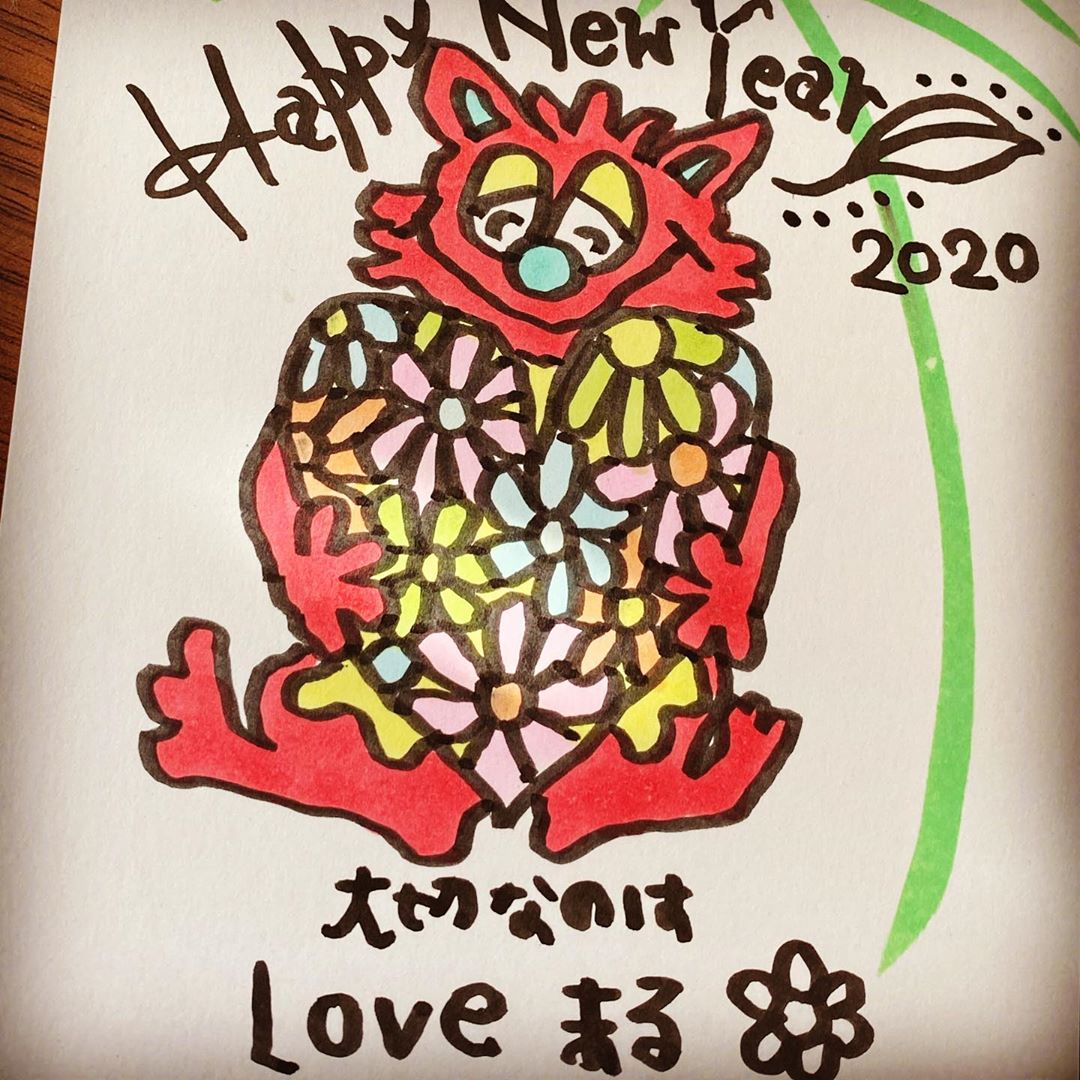 Happy New Year
2020
大切なのは
Love まる